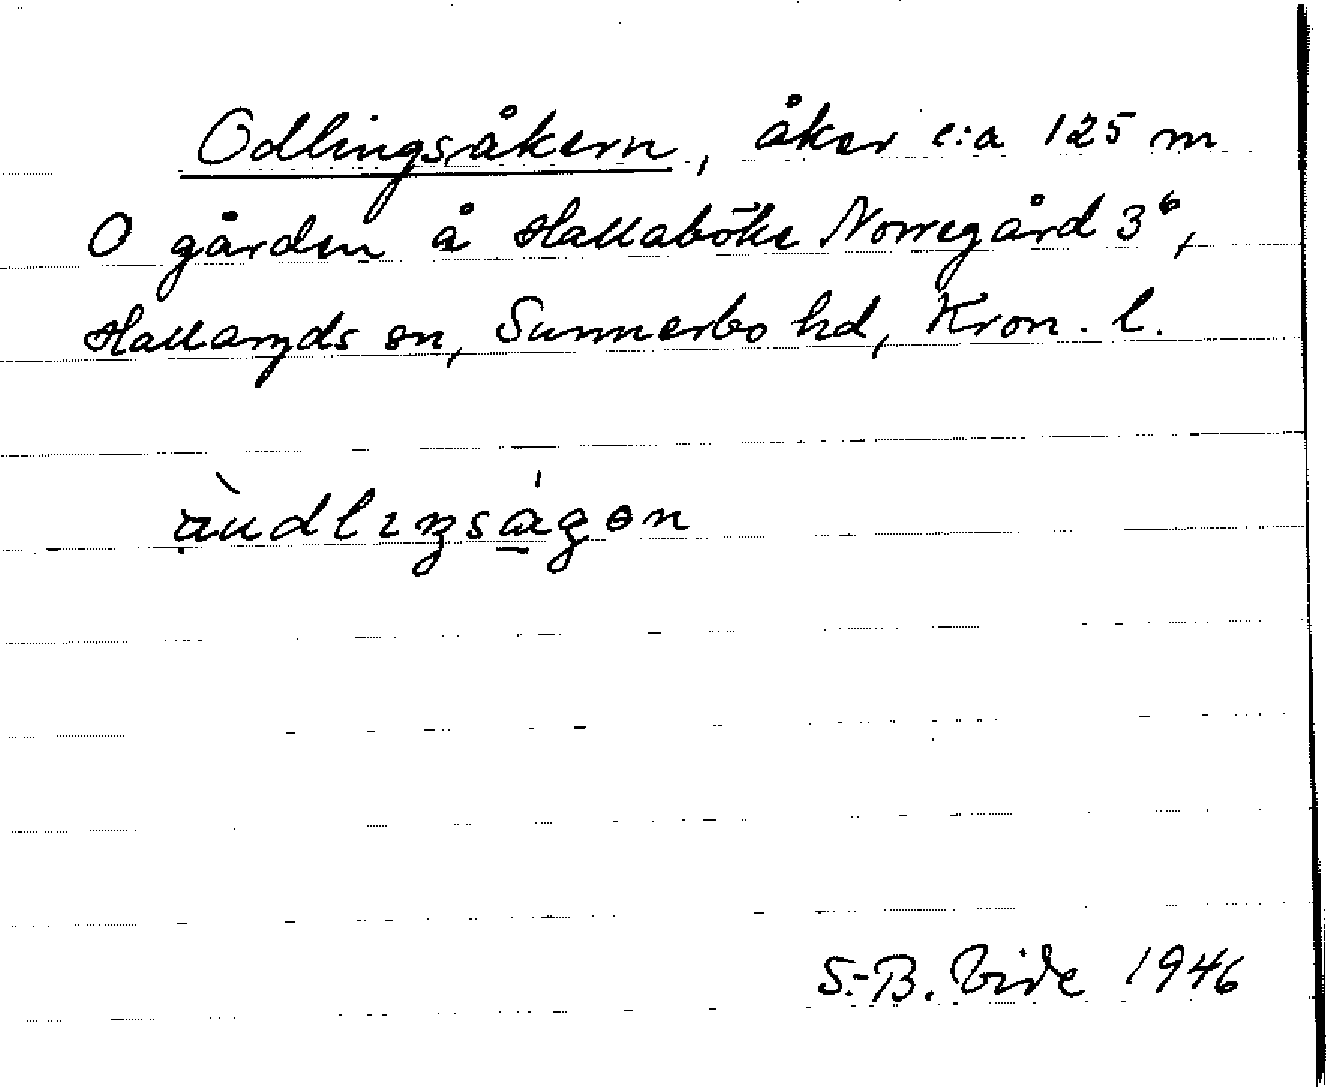 Odlingsåkern, åker c:a 125 m
O gården å Hallaböke Norregård 3⁶,
Hallaryds sn, Sunnerbo hd, Kron. l.
àudlıŋságən
S.-B. Vide 1946